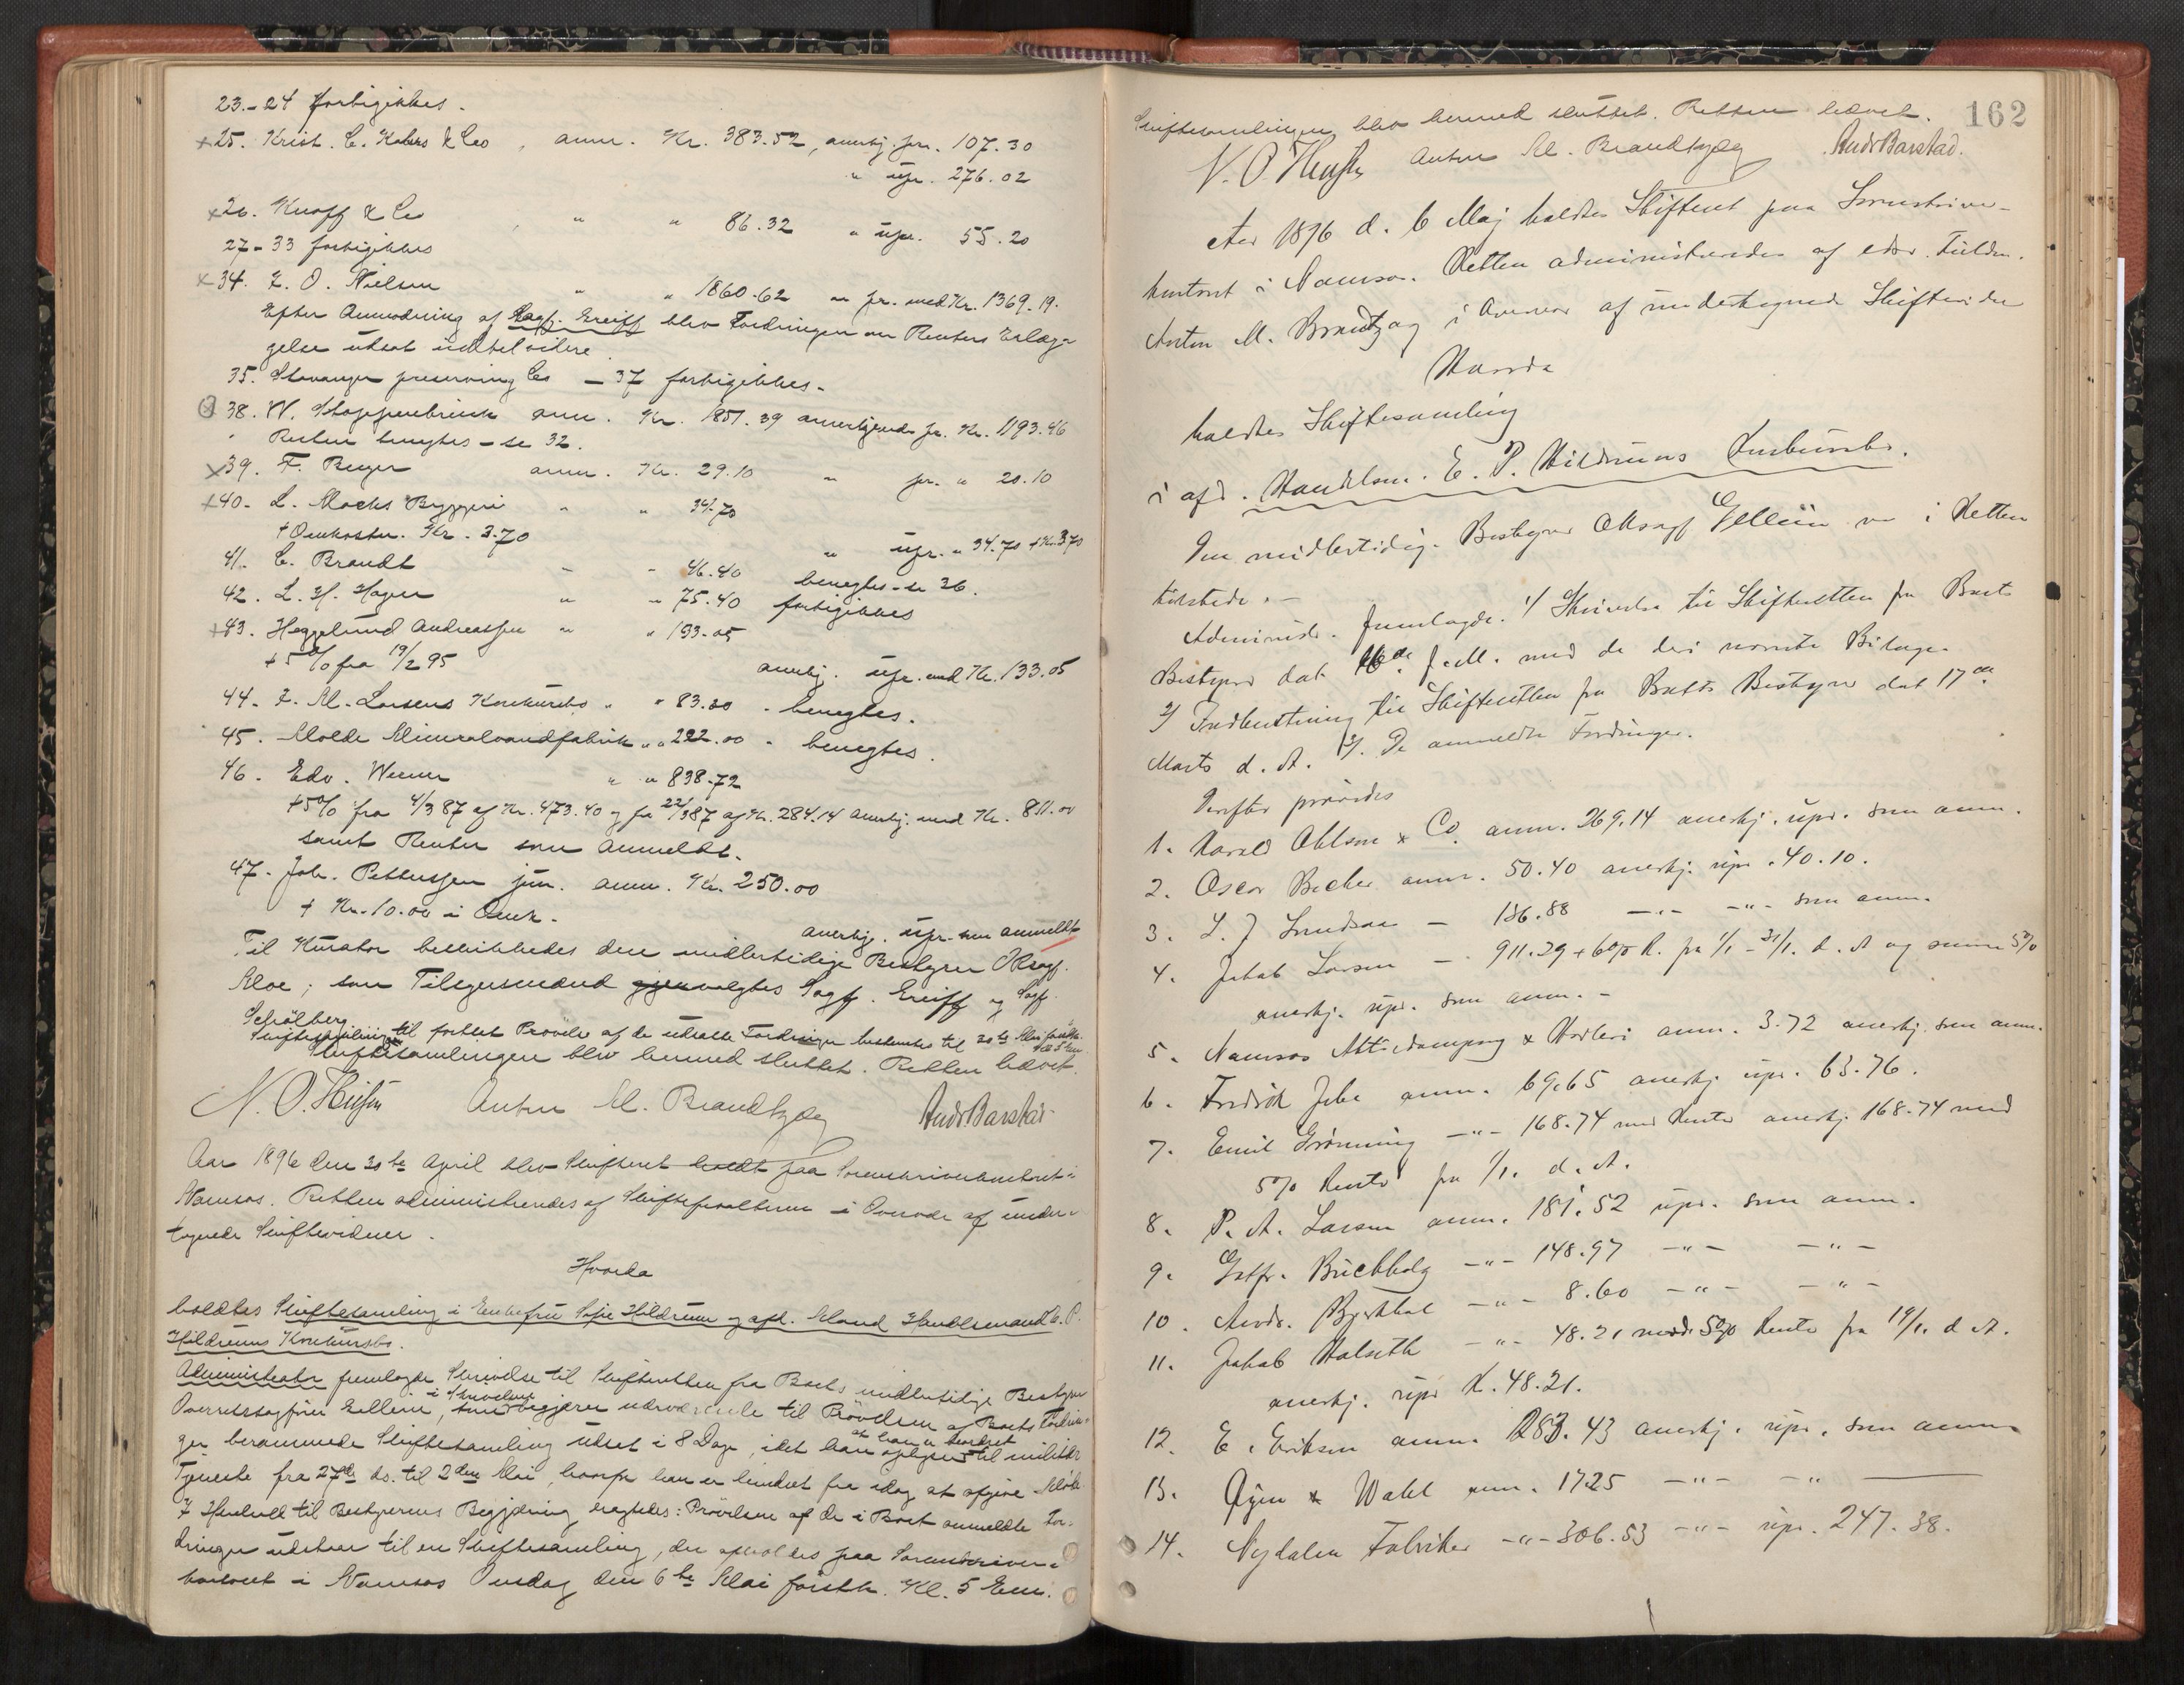 23.-24 forbigikkes.
+25. Krist. C. Kahrs & Co, anm. Kr. 383.52, anerkj. pr. 107.30
" upr. 276.02
x26. Knoff & Co " " 86.32 " upr. 55.20
27-33 forbigikkes
x34. L. O. Nielsen " " 1860.62 " pr. med Kr. 1369.19.
Efter Anmodning af Sagf. Greiff blev Fordringen om Renters Erlæg-
gelse udsat indtil videre.
35. Stavanger preserving Co - 37 forbigikkes.
38. W. Stoppenbrink anm. Kr. 1851.39 anerkjendes pr. Kr. 1193.46
Resten benegtes - se 32.
x39. F. Beyer anm. Kr. 29.10 " pr. " 20.10
+40. L. Macks Bryggeri " " 34.70
+ Omkostn. Kr. 3.70 " upr. " 34.70 + Kr. 3.70
41. C. Brandt - - 46.40 benegtes - se 36.
42. L. H. Hagen " " 75.40 forbigikkes
+43. Heggelund Andreassen " " 133.05
+ 5% fra 19/2 95 anerkj. upr. med Kr. 133.05
44. L. M. Larsens Konkursbo " " 83.20 - benegtes.
45. Molde Mineralvandfabrik " " 222.00 - benegtes.
46. Edv. Werner " " 838.72
+5% fra 4/3 87 af Kr. 473.40 og fra 22/3 87 af Kr. 284.14 anerkj. med Kr. 811.00
samt Renter som anmeldt.
47. Joh. Pettersen jun. anm. Kr. 250.00
+ Kr. 10.00 i Omk.
anerkj. upr. som anmeldt
Til Kurator beskikkedes den midlertidige Bestyrer ORsagf.
Moe; som Tilsynsmænd gjenvalgtes Sagf. Greiff og Sagf.
Schølberg
Skiftesamling til fortsat Prøvelse af de udsatte Fordringer bestemtes til 20de Mai førstk.
Skiftesamlingen blev hermed sluttet. Retten hævet.
Anton M. Brandtzæg Andr Barstad
Aar 1896 den 30te April blev Skifteret holdt paa Sorenskriverkontoret i
Namsos. Retten administreredes af Skifteforvalteren i Overvær af under-
tegnede Skiftevidner.
Hvorda
holdtes Skiftesamling i Enkefru Hildrum og afd. Mand Handelsmand E. P.
Hildrums Konkursbo.
Administrator fremlagde Skrivelse til Skifteretten fra Boets midlertidige Bestyrer
Overretssagfører Gellein, i Skrivelsen begjærer udsat den til Prøvelsen af Boets Fordrin-
ger berammede Skiftesamling udsat i 8 Dage, idet han at han er beordret til militær
Tjeneste fra 27de ds. til 2den Mai, hvorfor han er hindret fra idag at afgive Møde.
I Henhold til Bestyrerens Begjæring eragtedes: Prøvelsen af de i Boet anmeldte For-
dringer udstaar til en Skiftesamling, der afholdes paa Sorenskriver-
kontoret i Namsos Onsdag den 6te Mai førstk. Kl. 5 Em.
162
Skiftesamlingen blev hermed sluttet. Retten hævet.
Anton M. Brandtzæg Andr Barstad.
Aar 1896 d. 6 Maj holdtes Skifteret paa Sorenskriver-
kontoret i Namsos. Retten administreredes af edsv. Fuldm.
Anton M. Brandtzæg i Overvær af undertegnede Skiftevidner
Hvorda
holdtes Skiftesamling
i afd. Handelsm. E. P. Hildrums Konkursbo.
Den midlertidig. Bestyrer ORsagf Gellein var i Retten
tilstede.-
Administr. fremlagde. 1/ Skrivelse til Skifteretten fra Boets
Bestyrer dat 16de f.M. med de deri nævnte Bilage.
2/ Indberetning til Skifteretten fra Boets Bestyrer dat 17de
Marts d. A. 3/. De anmeldte Fordringer.
Derefter prøvedes
1. Harald Ohlsen & Co. anm. 269.14 anerkj. upr. som anm.
2. Oscar Becker anm. 50.40 anerkj. upr. 40.10.
3. L. J Sundsaa - 136.88 -"- -"- som anm.
4. Jakob Larsen - 911.29 + 6% R. fra 1/1 - 31/1. d. A og senere 5%
anerkj. upr. som anm. -
5. Namsos Aktiedampsag & Høvleri anm. 3.72 anerkj. som anm.
6. Fredrik Jebe anm. 69.65 anerkj. upr. 63.76.
7. Emil Grønning -"- 168.74 med Rente anerkj. 168.74 med
5% Rente fra 1/1. d. A.
8. P. A. Larsen anm. 181.52 upr. som anm.
9. Gotfr. Buchholz -"- 148.97 -"- -"-
10. Andr. -"- 8.60 -"- -"-
11. Jakob Halseth -"- 48.21 med 5% Rente fra 14/1. d A.
anerkj. upr K. 48.21.
12. E. Eriksen anm. 253.43 anerkj. upr. som anm.
13. Øyen & Wahl anm. 17.25 -"- -"-
14. Nydalen Fabriker -"- 306.53 -"- upr. 247.38.